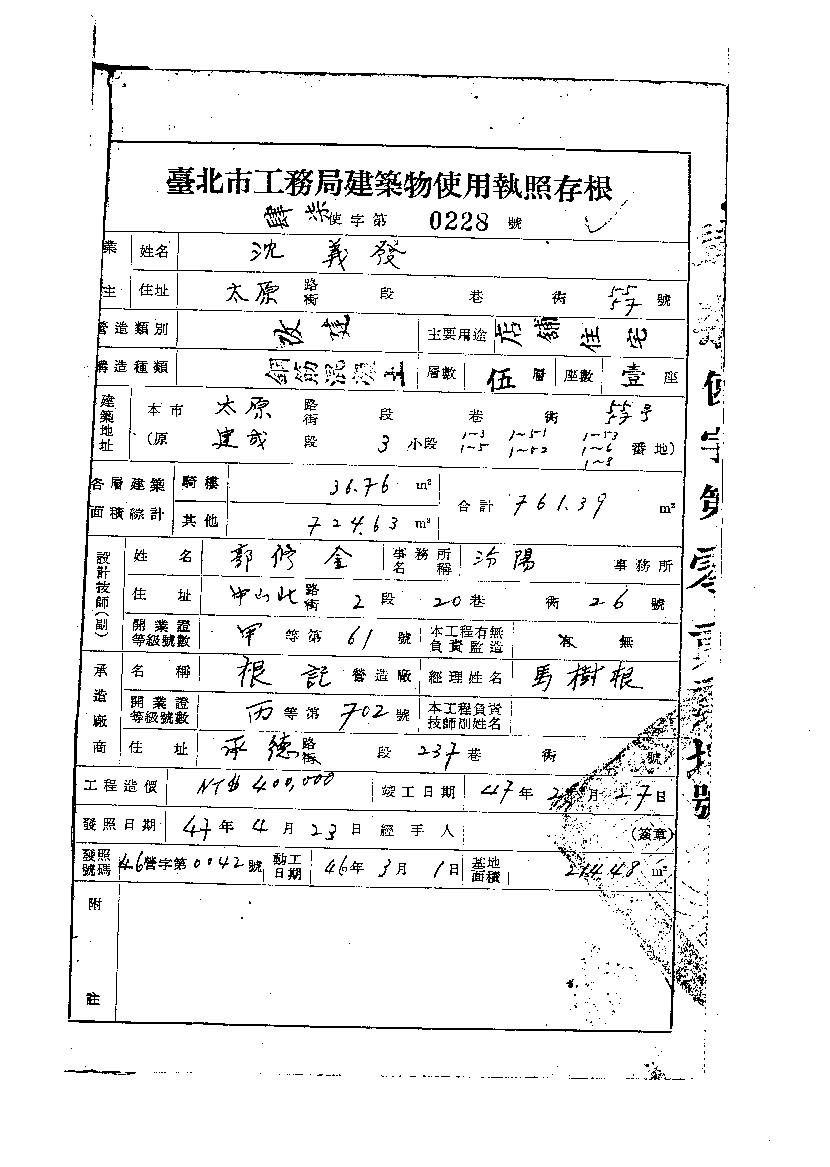 臺北市工務局建築物使用執照存根
肆柒使字第 0228 號
業主 姓名 沈義發
住址 太原 路街 段 巷 衖 55 57 號
營造類別 改建 主要用途 店舖住宅
構造種類 鋼筋混凝土 層數 伍層 座數 壹座
建築地址 本市 太原 路街 段 巷 衖 55 57 号
(原 建成 段 3 小段 1-3 1-5 1-51 1-52 1-53 1-6 1-8 番地)
各層建築面積綜計 騎樓 36.76 m² 合計 761.39 m²
其他 724.63 m²
設計技師(副) 姓名 郭修金 事務所名稱 汾陽 事務所
住址 中山北 路街 2 段 20 巷 衖 26 號
開業證等級號數 甲 等第 61 號 本工程有無負責監造 有 無
承造廠商 名稱 根記 營造廠 經理姓名 馬樹根
開業證等級號數 丙 等第 702 號 本工程負責技師副姓名
住址 承德 路街 段 237 巷 衖 號
工程造價 NT$ 400,000 竣工日期 47 年 月 27 日
發照日期 47 年 4 月 23 日 經手人 (簽章)
發照號碼 46營字第0042號 動工日期 46年 3月 1日 基地面積 214.48 m²
附註
使字第零
號